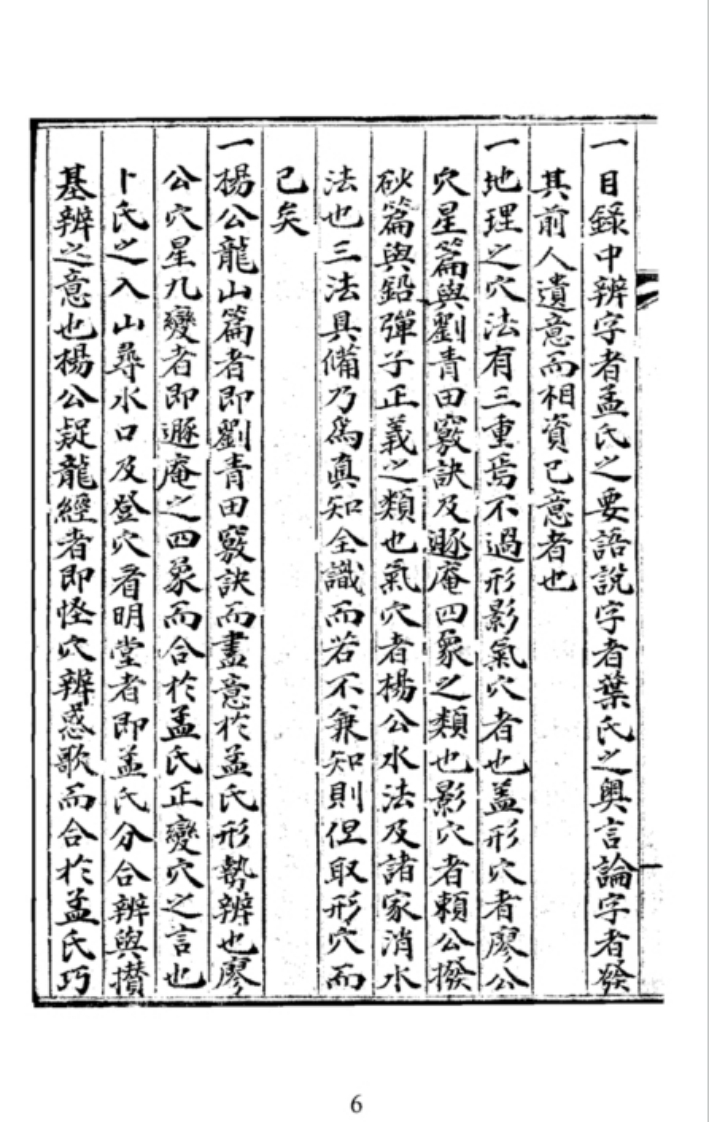 一目錄中辨字者孟氏之要語說字者葉氏之奧言論字者發
其前人遺意而相資己意者也
一地理之穴法有三重焉不過形影氣穴者也盖形穴者廖公
穴星篇與劉青田竅訣及遯庵四象之類也影穴者賴公撥
砂篇與鉛彈子正義之類也氣穴者楊公水法及諸家消水
法也三法具備乃爲眞知全識而若不兼知則但取形穴而
已矣
一楊公龍山篇者即劉青田竅訣而盡意於孟氏形勢辨也廖
公穴星九變者即遯庵之四象而合於孟氏正變穴之言也
卜氏之入山尋水口及登穴看明堂者即孟氏分合辨與攅
基辨之意也楊公疑龍經者即怪穴辨惑歌而合於孟氏巧
6